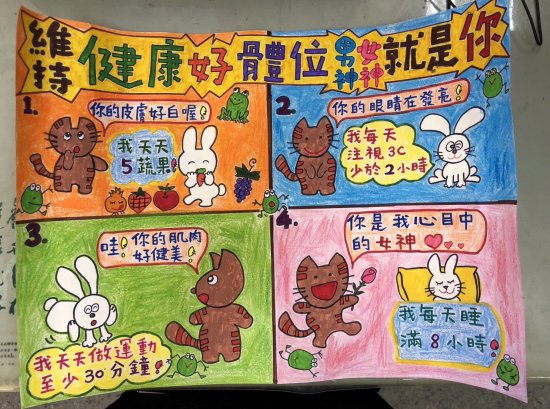 維持健康好體位男神女神就是你
1.
你的皮膚好白喔!
我天天
5蔬果!
2.
你的眼睛在發亮!
我每天
注視3C
少於2小時
3.
哇!你的肌肉
好健美!
我天天做運動
至少30分鐘!
4.
你是我心目中
的女神
我每天睡
滿8小時